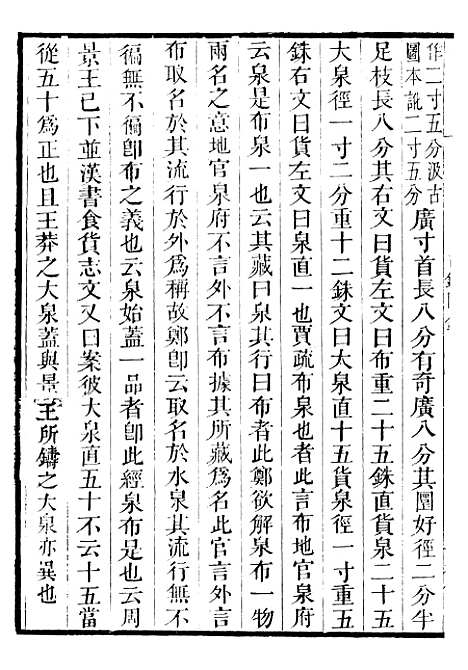 作二寸五分汲古
圖本訛二寸五分
廣寸首長八分有奇廣八分其圜好徑二分半
足枝長八分其右文曰貨左文曰布重二十五銖直貨泉二十五
大泉徑一寸二分重十二銖文曰大泉直十五貨泉徑一寸重五
銖右文曰貨左文曰泉直一也賈疏布泉也者此言布地官泉府
云泉是布泉一也云其藏曰泉其行曰布者此鄭欲解泉布一物
兩名之意地官泉府不言外不言布據其所藏爲名此官言外言
布取名於其流行於外爲稱故鄭卽云取名於水泉其流行無不
徧無不徧卽布之義也云泉始蓋一品者卽此經泉布是也云周
景王已下並漢書食貨志文又曰案彼大泉直五十不云十五當
從五十爲正也且王莽之大泉蓋與景王所鑄之大泉亦異也